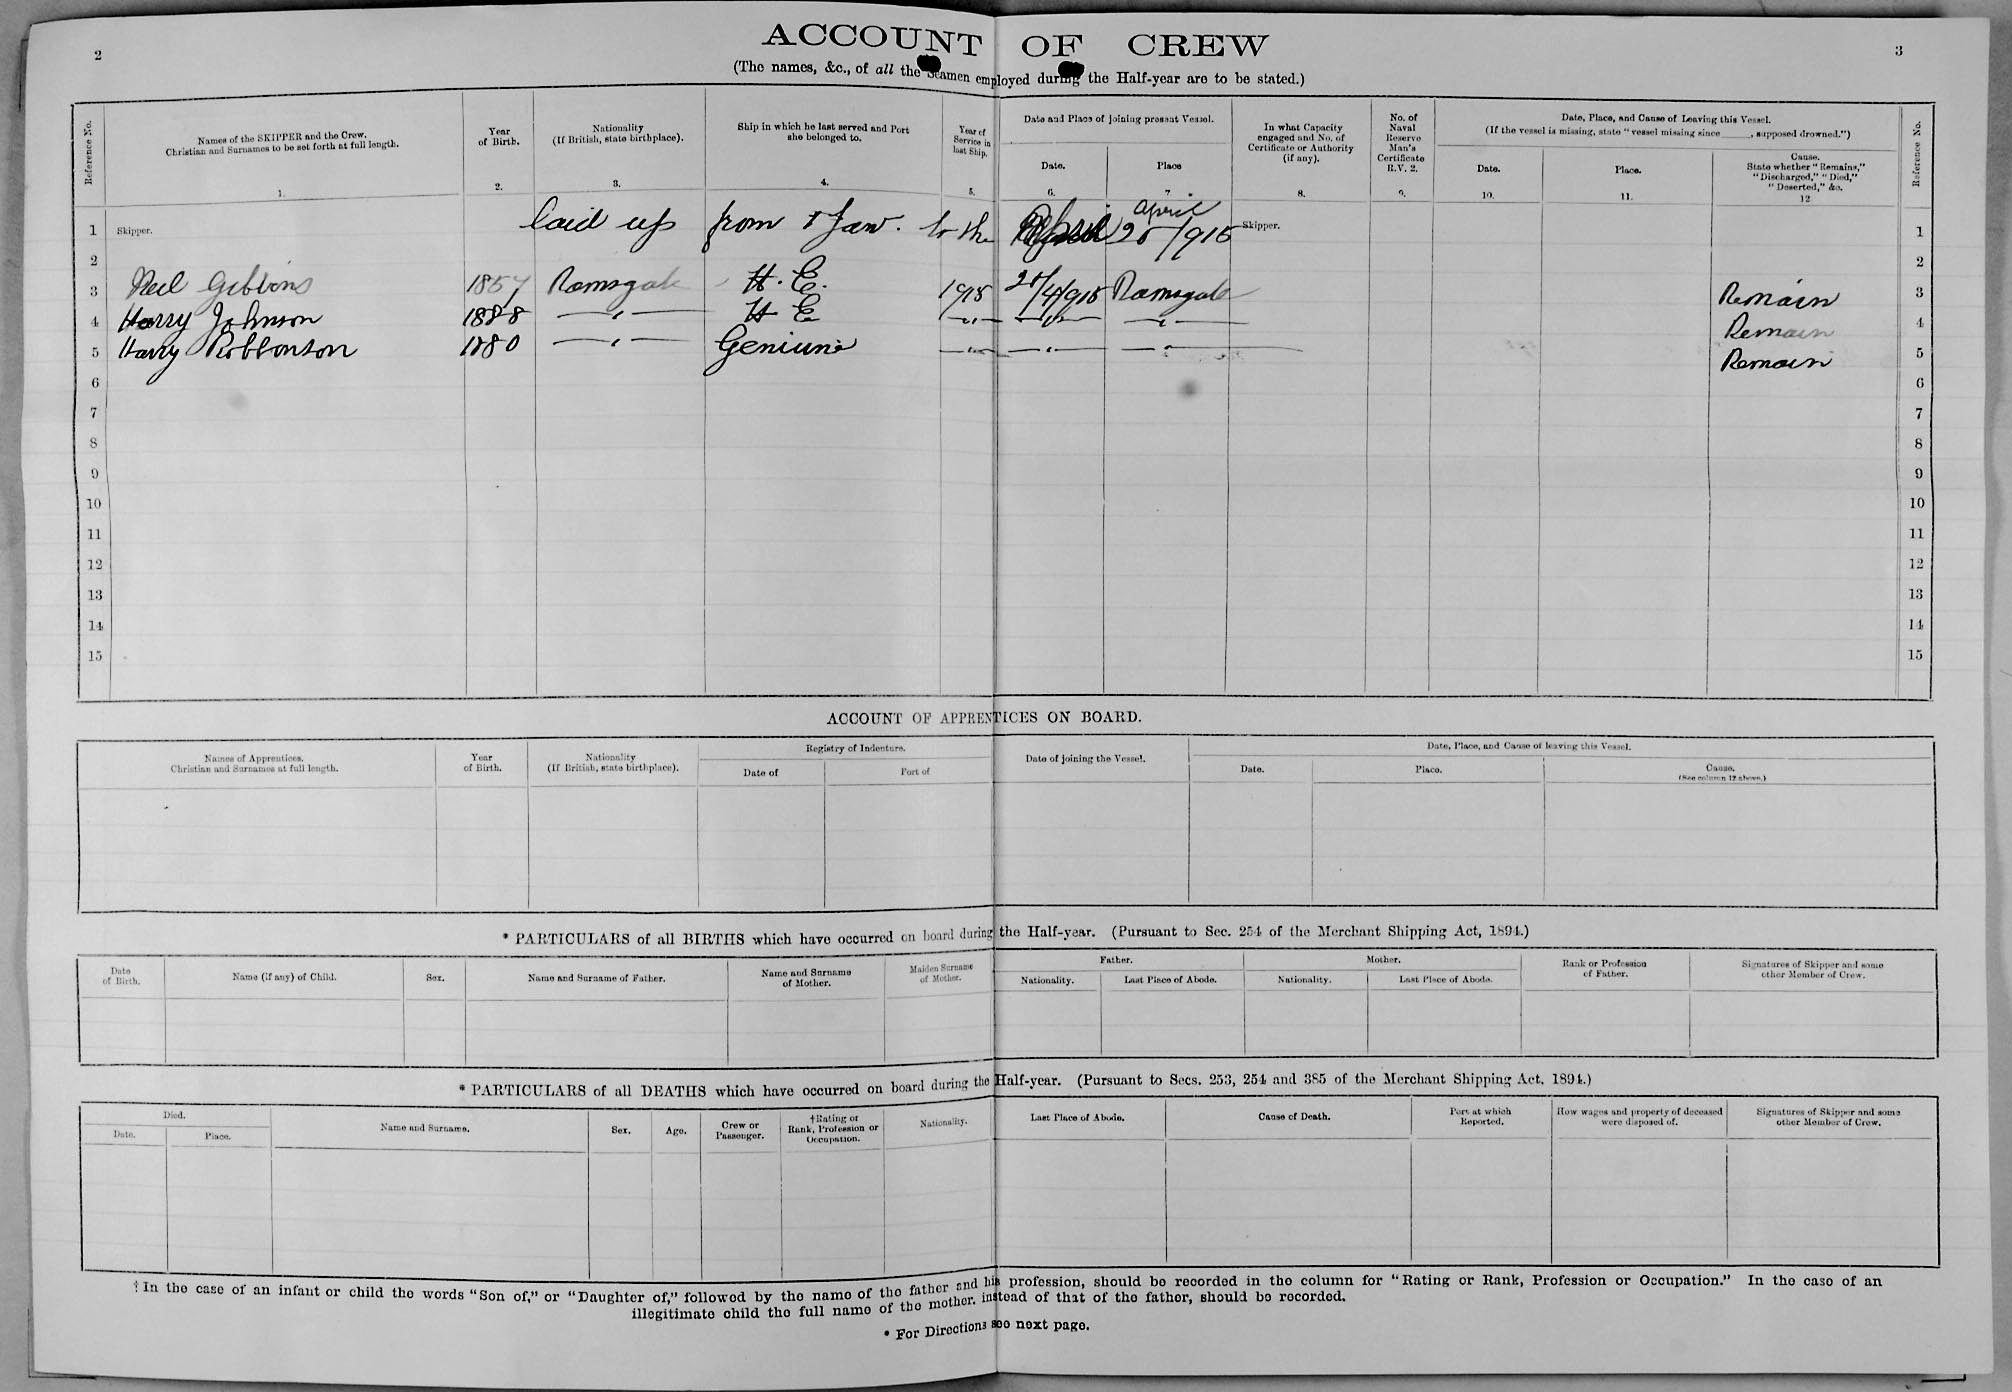 2
ACCOUNT OF CREW
3
(The names, &c., of all the Seamen employed during the Half-year are to be stated.)
Reference No.
Names of the SKIPPER and the Crew.
Christian and Surnames to be set forth at full length.
1.
Year
of Birth.
2.
Nationality
(If British, state birthplace).
3.
Ship in which he last served and Port
she belonged to.
4.
Year of
Service in
last Ship.
5.
Date and Place of joining present Vessel.
Date.
6.
Place
7.
In what Capacity
engaged and No. of
Certificate or Authority
(if any).
8.
No. of
Naval
Reserve
Man's
Certificate
R.V. 2.
9.
Date, Place, and Cause of Leaving this Vessel.
(If the vessel is missing, state "vessel missing since ____, supposed drowned.")
Date.
10.
Place.
11.
Cause.
State whether "Remains,"
"Discharged," "Died,"
"Deserted," &c.
12
Reference No.
april
1 Skipper. laid up from 1 Jan. to the 20/1915 Skipper. 1
2 2
3 Neil Gibbons 1857 Ramsgate H. E. 1915 20/4/1915 Ramsgate Remain 3
4 Harry Johnson 1888 —"— H E —"— —"— —"— Remain 4
5 Harry Robbonson 1880 —"— Geniune —"— —"— —"— Remain 5
6 6
7 7
8 8
9 9
10 10
11 11
12 12
13 13
14 14
15 15
ACCOUNT OF APPRENTICES ON BOARD.
Names of Apprentices.
Christian and Surnames at full length.
Year
of Birth.
Nationality
(If British, state birthplace).
Registry of Indenture.
Date of
Port of
Date of joining the Vessel.
Date, Place, and Cause of leaving this Vessel.
Date.
Place.
Cause.
(See column 12 above.)
* PARTICULARS of all BIRTHS which have occurred on board during the Half-year. (Pursuant to Sec. 254 of the Merchant Shipping Act, 1894.)
Date
of Birth.
Name (if any) of Child.
Sex.
Name and Surname of Father.
Name and Surname
of Mother.
Maiden Surname
of Mother.
Father.
Nationality.
Last Place of Abode.
Mother.
Nationality.
Last Place of Abode.
Rank or Profession
of Father.
Signatures of Skipper and some
other Member of Crew.
* PARTICULARS of all DEATHS which have occurred on board during the Half-year. (Pursuant to Secs. 253, 254 and 385 of the Merchant Shipping Act, 1894.)
Died.
Date.
Place.
Name and Surname.
Sex.
Age.
Crew or
Passenger.
†Rating or
Rank, Profession or
Occupation.
Nationality.
Last Place of Abode.
Cause of Death.
Port at which
Reported.
How wages and property of deceased
were disposed of.
Signatures of Skipper and some
other Member of Crew.
†In the case of an infant or child the words "Son of," or "Daughter of," followed by the name of the father and his profession, should be recorded in the column for "Rating or Rank, Profession or Occupation." In the case of an
illegitimate child the full name of the mother, instead of that of the father, should be recorded.
* For Directions see next page.